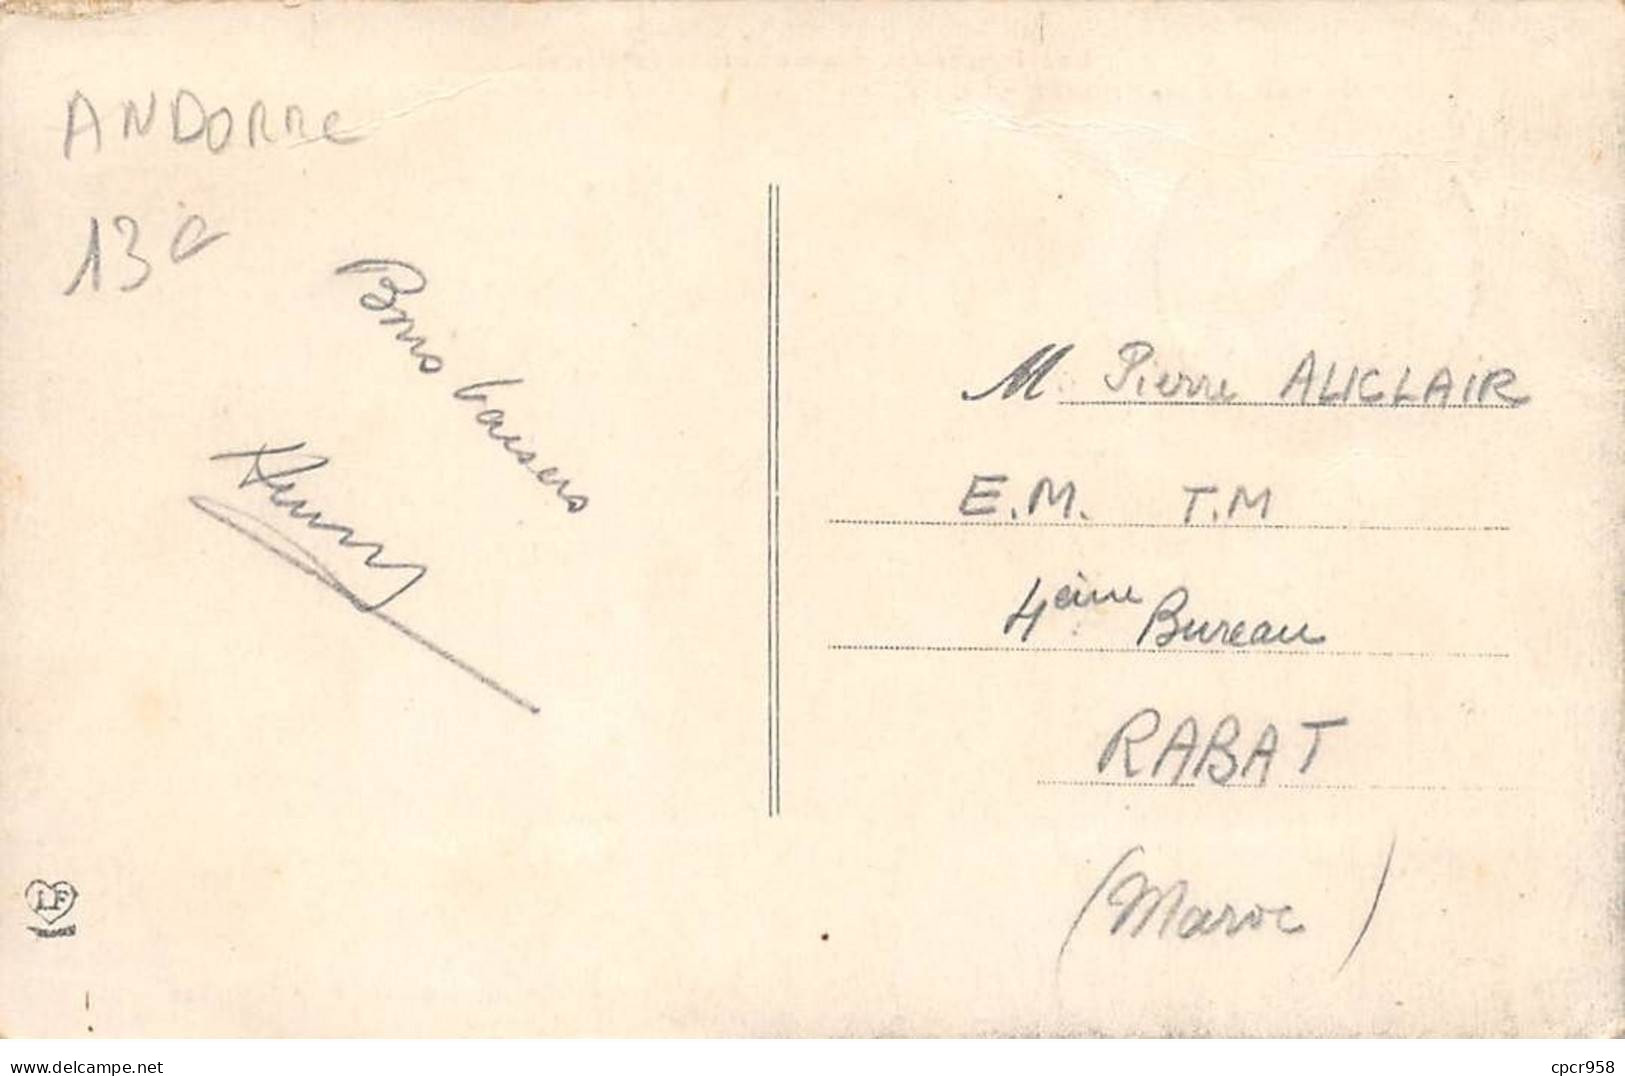 ANDORRE
13e
Bons baisers
Henry
I.F
M Pierre ALICLAIR
E.M. T.M
4ème Bureau
RABAT
(Maroc)
delcampe.net
cpcr958